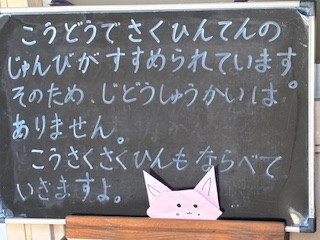 こうどうでさくひんてんの
じゅんびがすすめられています。
そのため、じどうしゅうかいは
ありません。
こうさくさくひんもならべて
いきますよ。